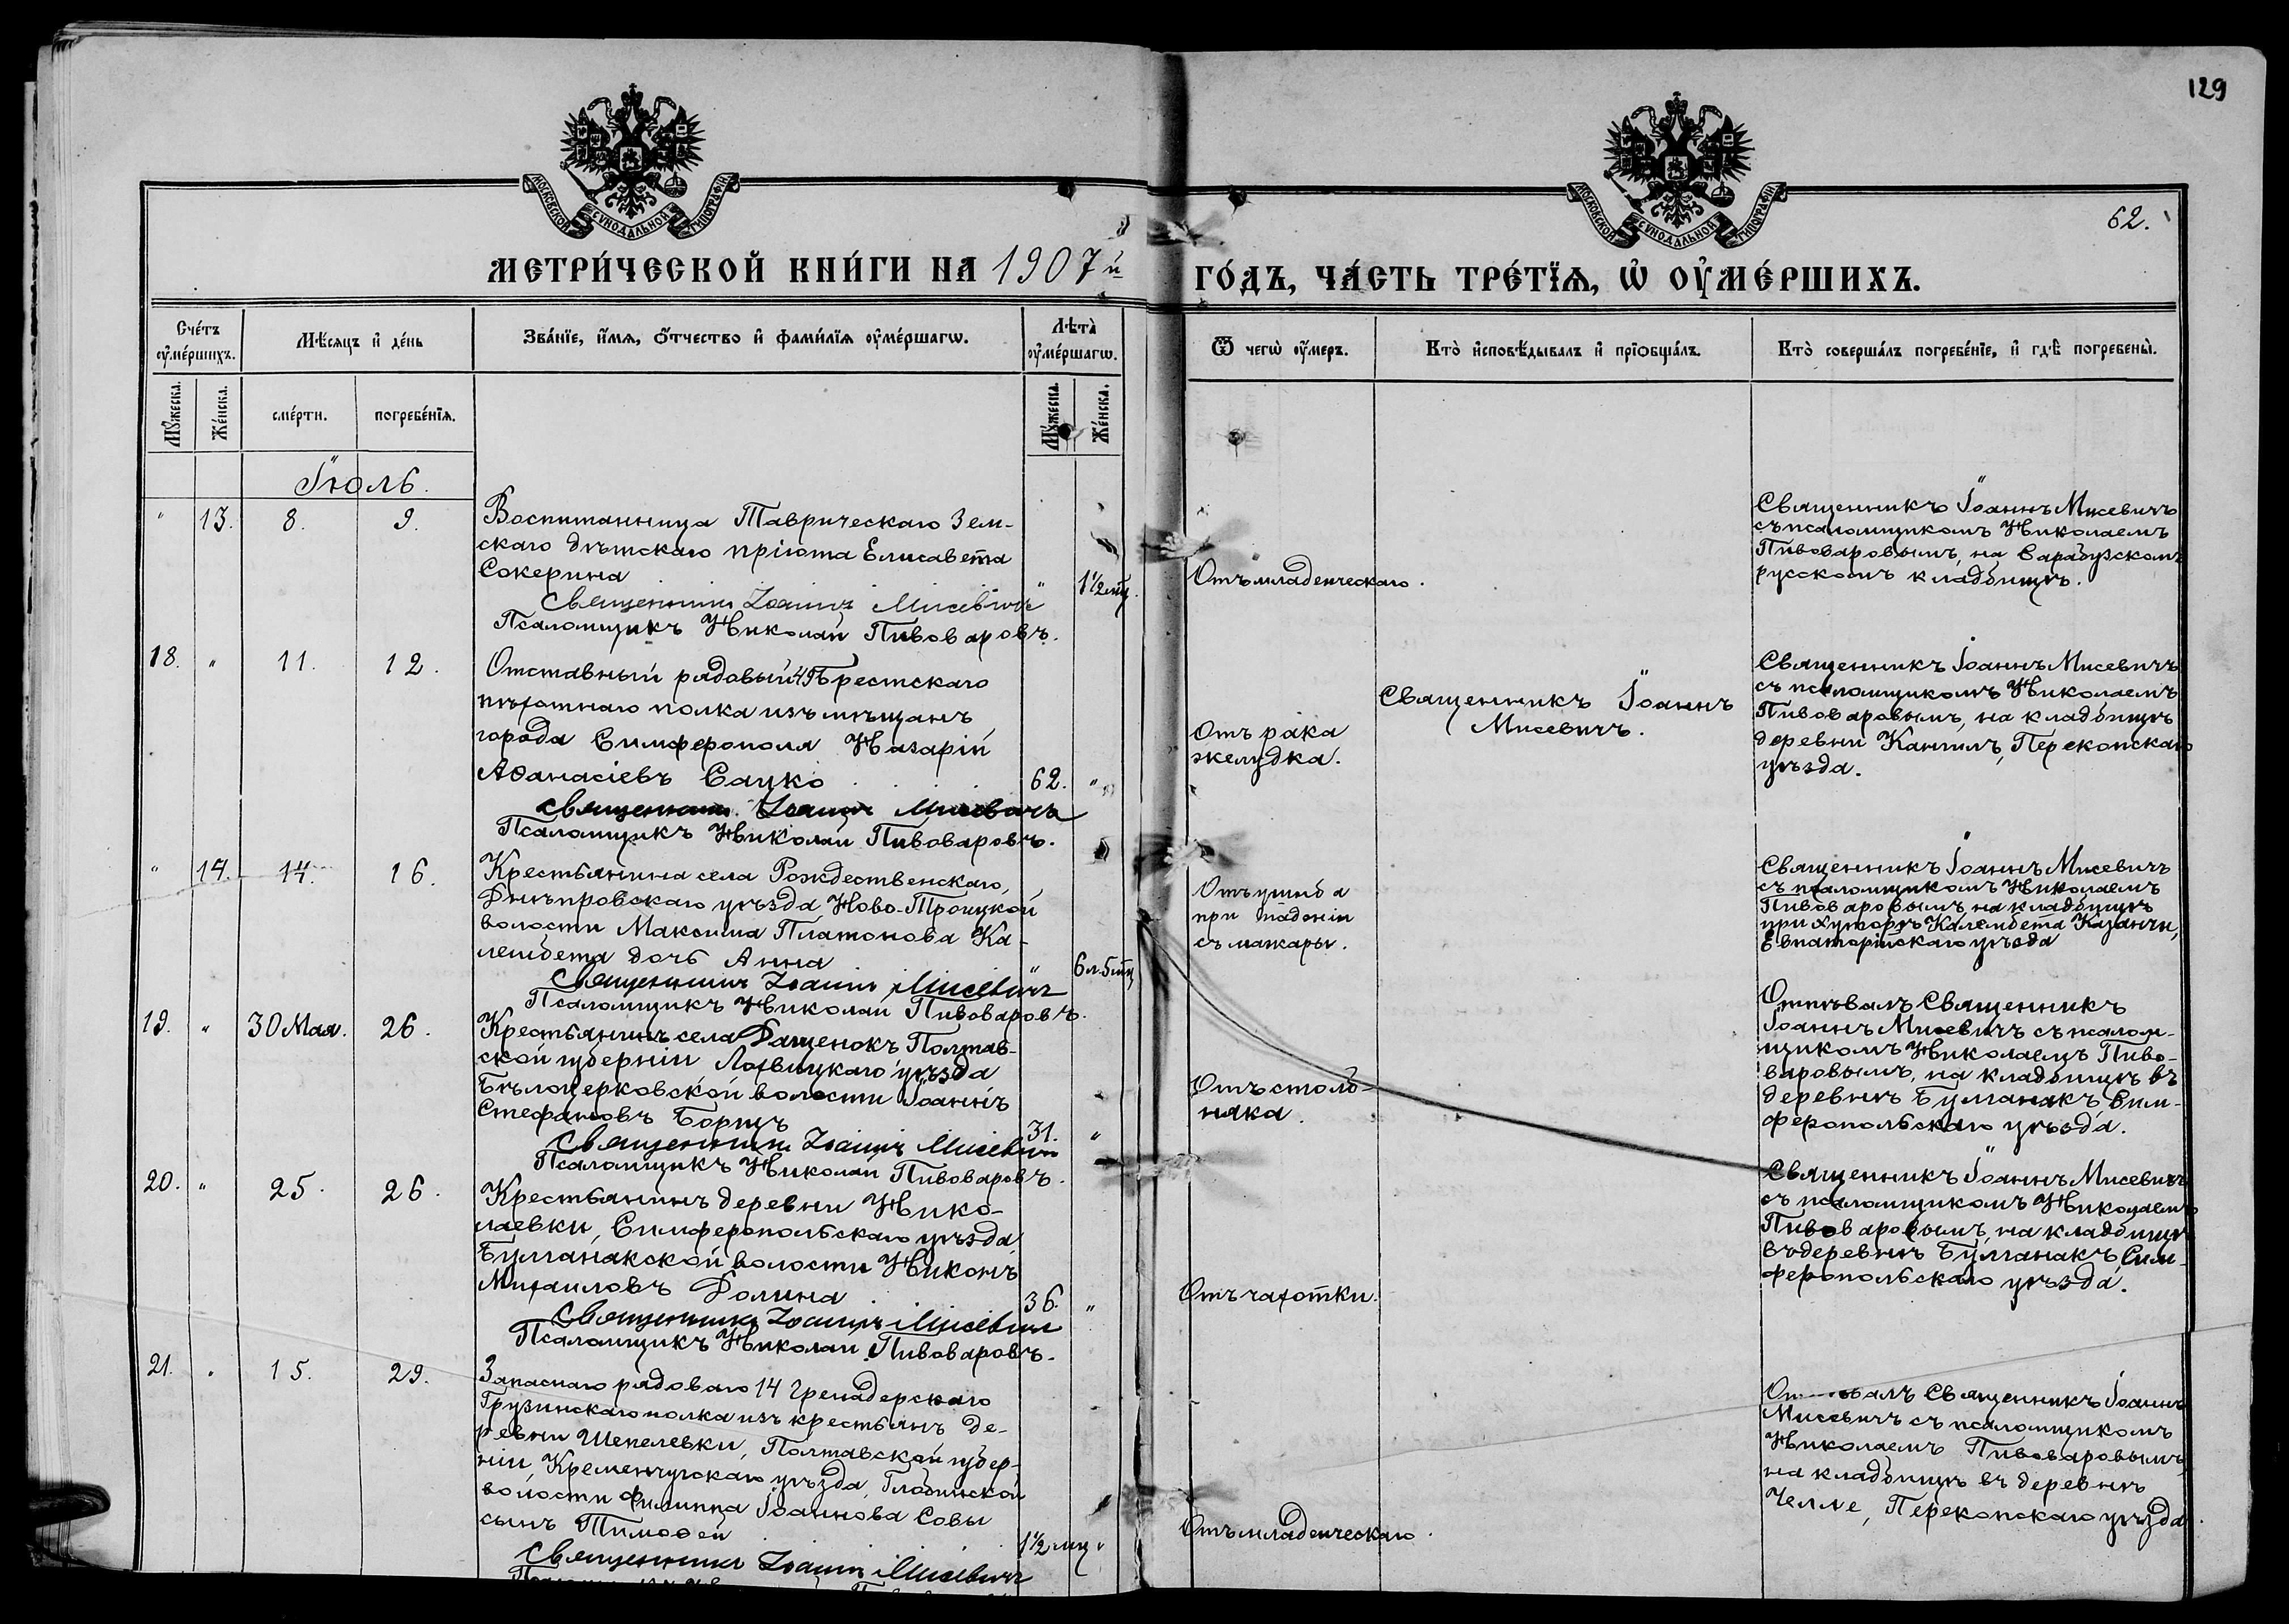 129
МОСКОВСКОЙ СѴНОДАЛЬНОЙ ТИПОГРАФІИ
МОСКОВСКОЙ СѴНОДАЛЬНОЙ ТИПОГРАФІИ
62.
МЕТРИ́ЧЕСКОЙ КНИ́ГИ НА 1907й
ГО́ДЪ, ЧА́СТЬ ТРЕ́ТЇѦ, Ѡ҆ ОУ҆МЕ́РШИХЪ.
Сче́тъ оу҆ме́ршихъ.
Мѣ́сяцъ и҆ де́нь
Зва́нїе, и҆́мѧ, ѻ҆́тчество и҆ фами́лїѧ оу҆ме́ршагѡ.
Лѣ́та оу҆ме́ршагѡ.
Ѿ чегѡ̀ оу҆́меръ.
Кто̀ и҆сповѣ́дывалъ и҆ прїѡбща́лъ.
Кто̀ соверша́лъ погребе́нїе, и҆ гдѣ̀ погребены̀.
Мꙋ́жеска.
Же́нска.
сме́рти.
погребе́нїѧ.
Мꙋ́жеска.
Же́нска.
Іюль.
" 13. 8. 9.
Воспитанница Таврическаго Зем-
скаго дѣтскаго пріюта Елисавета
Сокерина
" 1½ мц.
Священникъ Іоаннъ Мисевичъ
Псаломщикъ Николай Пивоваровъ.
Отъ младенческаго.
Священникъ Іоаннъ Мисевичъ
съ псаломщикомъ Николаемъ
Пивоваровымъ, на Сарабузскомъ
русскомъ кладбищѣ.
18. " 11. 12.
Отставный рядовый 49 Брестскаго
пѣхотнаго полка изъ мѣщанъ
города Симферополя Назарій
Аѳанасіевъ Сацко
62. "
Священникъ Іоаннъ Мисевичъ
Псаломщикъ Николай Пивоваровъ.
Отъ рака
желудка.
Священникъ Іоаннъ
Мисевичъ.
Священникъ Іоаннъ Мисевичъ
съ псаломщикомъ Николаемъ
Пивоваровымъ, на кладбищѣ
деревни Перекопскаго
уѣзда.
" 14. 14. 16.
Крестьянина села Рождественскаго,
Днѣпровскаго уѣзда Ново-Троицкой
волости Максима Платонова Ка-
лембета дочь Анна
" 6 л. 5 мц
Священникъ Іоаннъ Мисевичъ
Псаломщикъ Николай Пивоваровъ.
Отъ ушиба
при паденіи
съ мажары.
Священникъ Іоаннъ Мисевичъ
съ псаломщикомъ Николаемъ
Пивоваровымъ на кладбищѣ
при хуторѣ Калембета Казанчи,
Евпаторійскаго уѣзда
19. " 30 Мая. 26.
Крестьянинъ села Дащенокъ Полтав-
ской губерніи Лохвицкаго уѣзда
Бѣлоцерковской волости Іоаннъ
Стефановъ Борщъ
31. "
Священникъ Іоаннъ Мисевичъ
Псаломщикъ Николай Пивоваровъ.
Отъ столб-
няка.
Отпѣвалъ Священникъ
Іоаннъ Мисевичъ съ псалом-
щикомъ Николаемъ Пиво-
варовымъ, на кладбищѣ въ
деревнѣ Булганакъ Сим-
феропольскаго уѣзда.
20. " 25. 26.
Крестьянинъ деревни Нико-
лаевки, Симферопольскаго уѣзда
Булганакской волости Никонъ
Михаиловъ Долина
36. "
Священникъ Іоаннъ Мисевичъ
Псаломщикъ Николай Пивоваровъ.
Отъ чахотки.
Священникъ Іоаннъ Мисевичъ
съ псаломщикомъ Николаемъ
Пивоваровымъ, на кладбищѣ
въ деревнѣ Булганакъ Сим-
феропольскаго уѣзда.
21. " 15. 29.
Запаснаго рядоваго 14 Гренадерскаго
Грузинскаго полка изъ крестьянъ де-
ревни Шепелевки, Полтавской губер-
ніи, Кременчугскаго уѣзда, Глобинской
волости Филиппа Іоаннова Совы
сынъ Тимоѳей
1½ мц "
Священникъ Іоаннъ Мисевичъ
Отъ младенческаго.
Отпѣвалъ Священникъ Іоаннъ
Мисевичъ съ псаломщикомъ
Николаемъ Пивоваровымъ,
на кладбищѣ въ деревнѣ
Челле, Перекопскаго уѣзда.